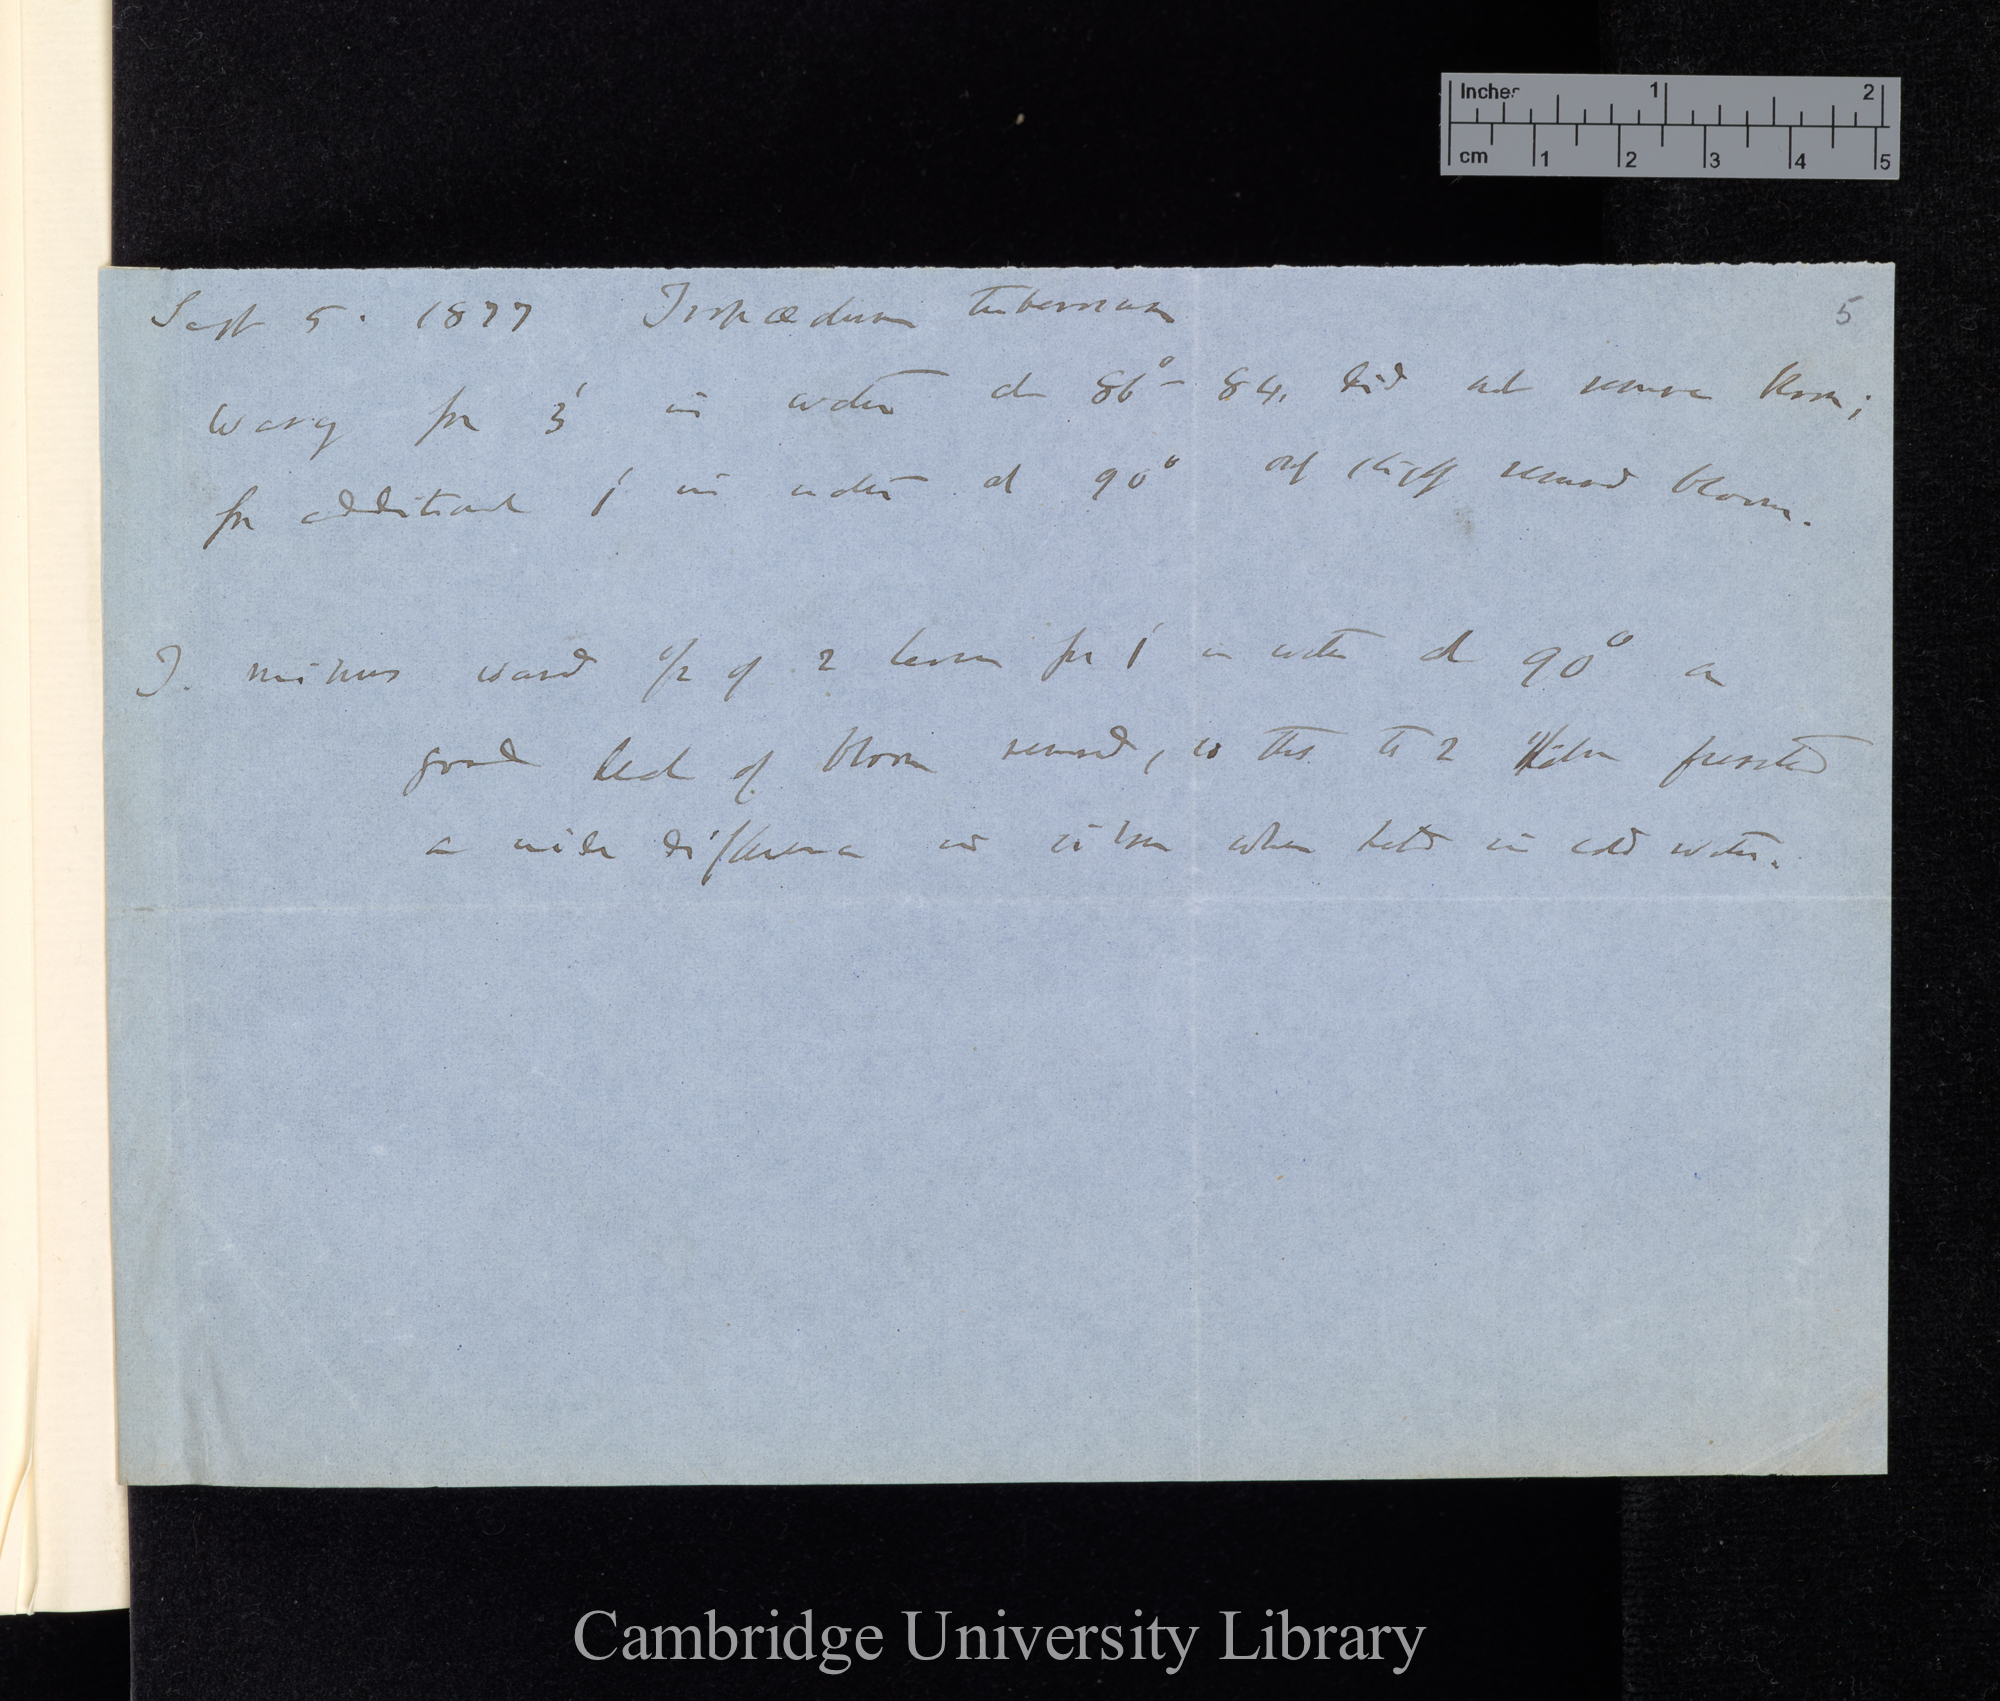 Inches 1 2
cm 1 2 3 4 5
5
Sept 5. 1877 Tropæolum tuberosum
waving for 3' in water at 86°– 84, did not remove bloom;
for additional 1' in water at 90° only slightly removed bloom.
T. minus waved 1/2 of 2 leaves for 1' in water at 90° a
good deal of bloom removed, so that the 2 presented
a wide difference as when held in cold water.
Cambridge University Library